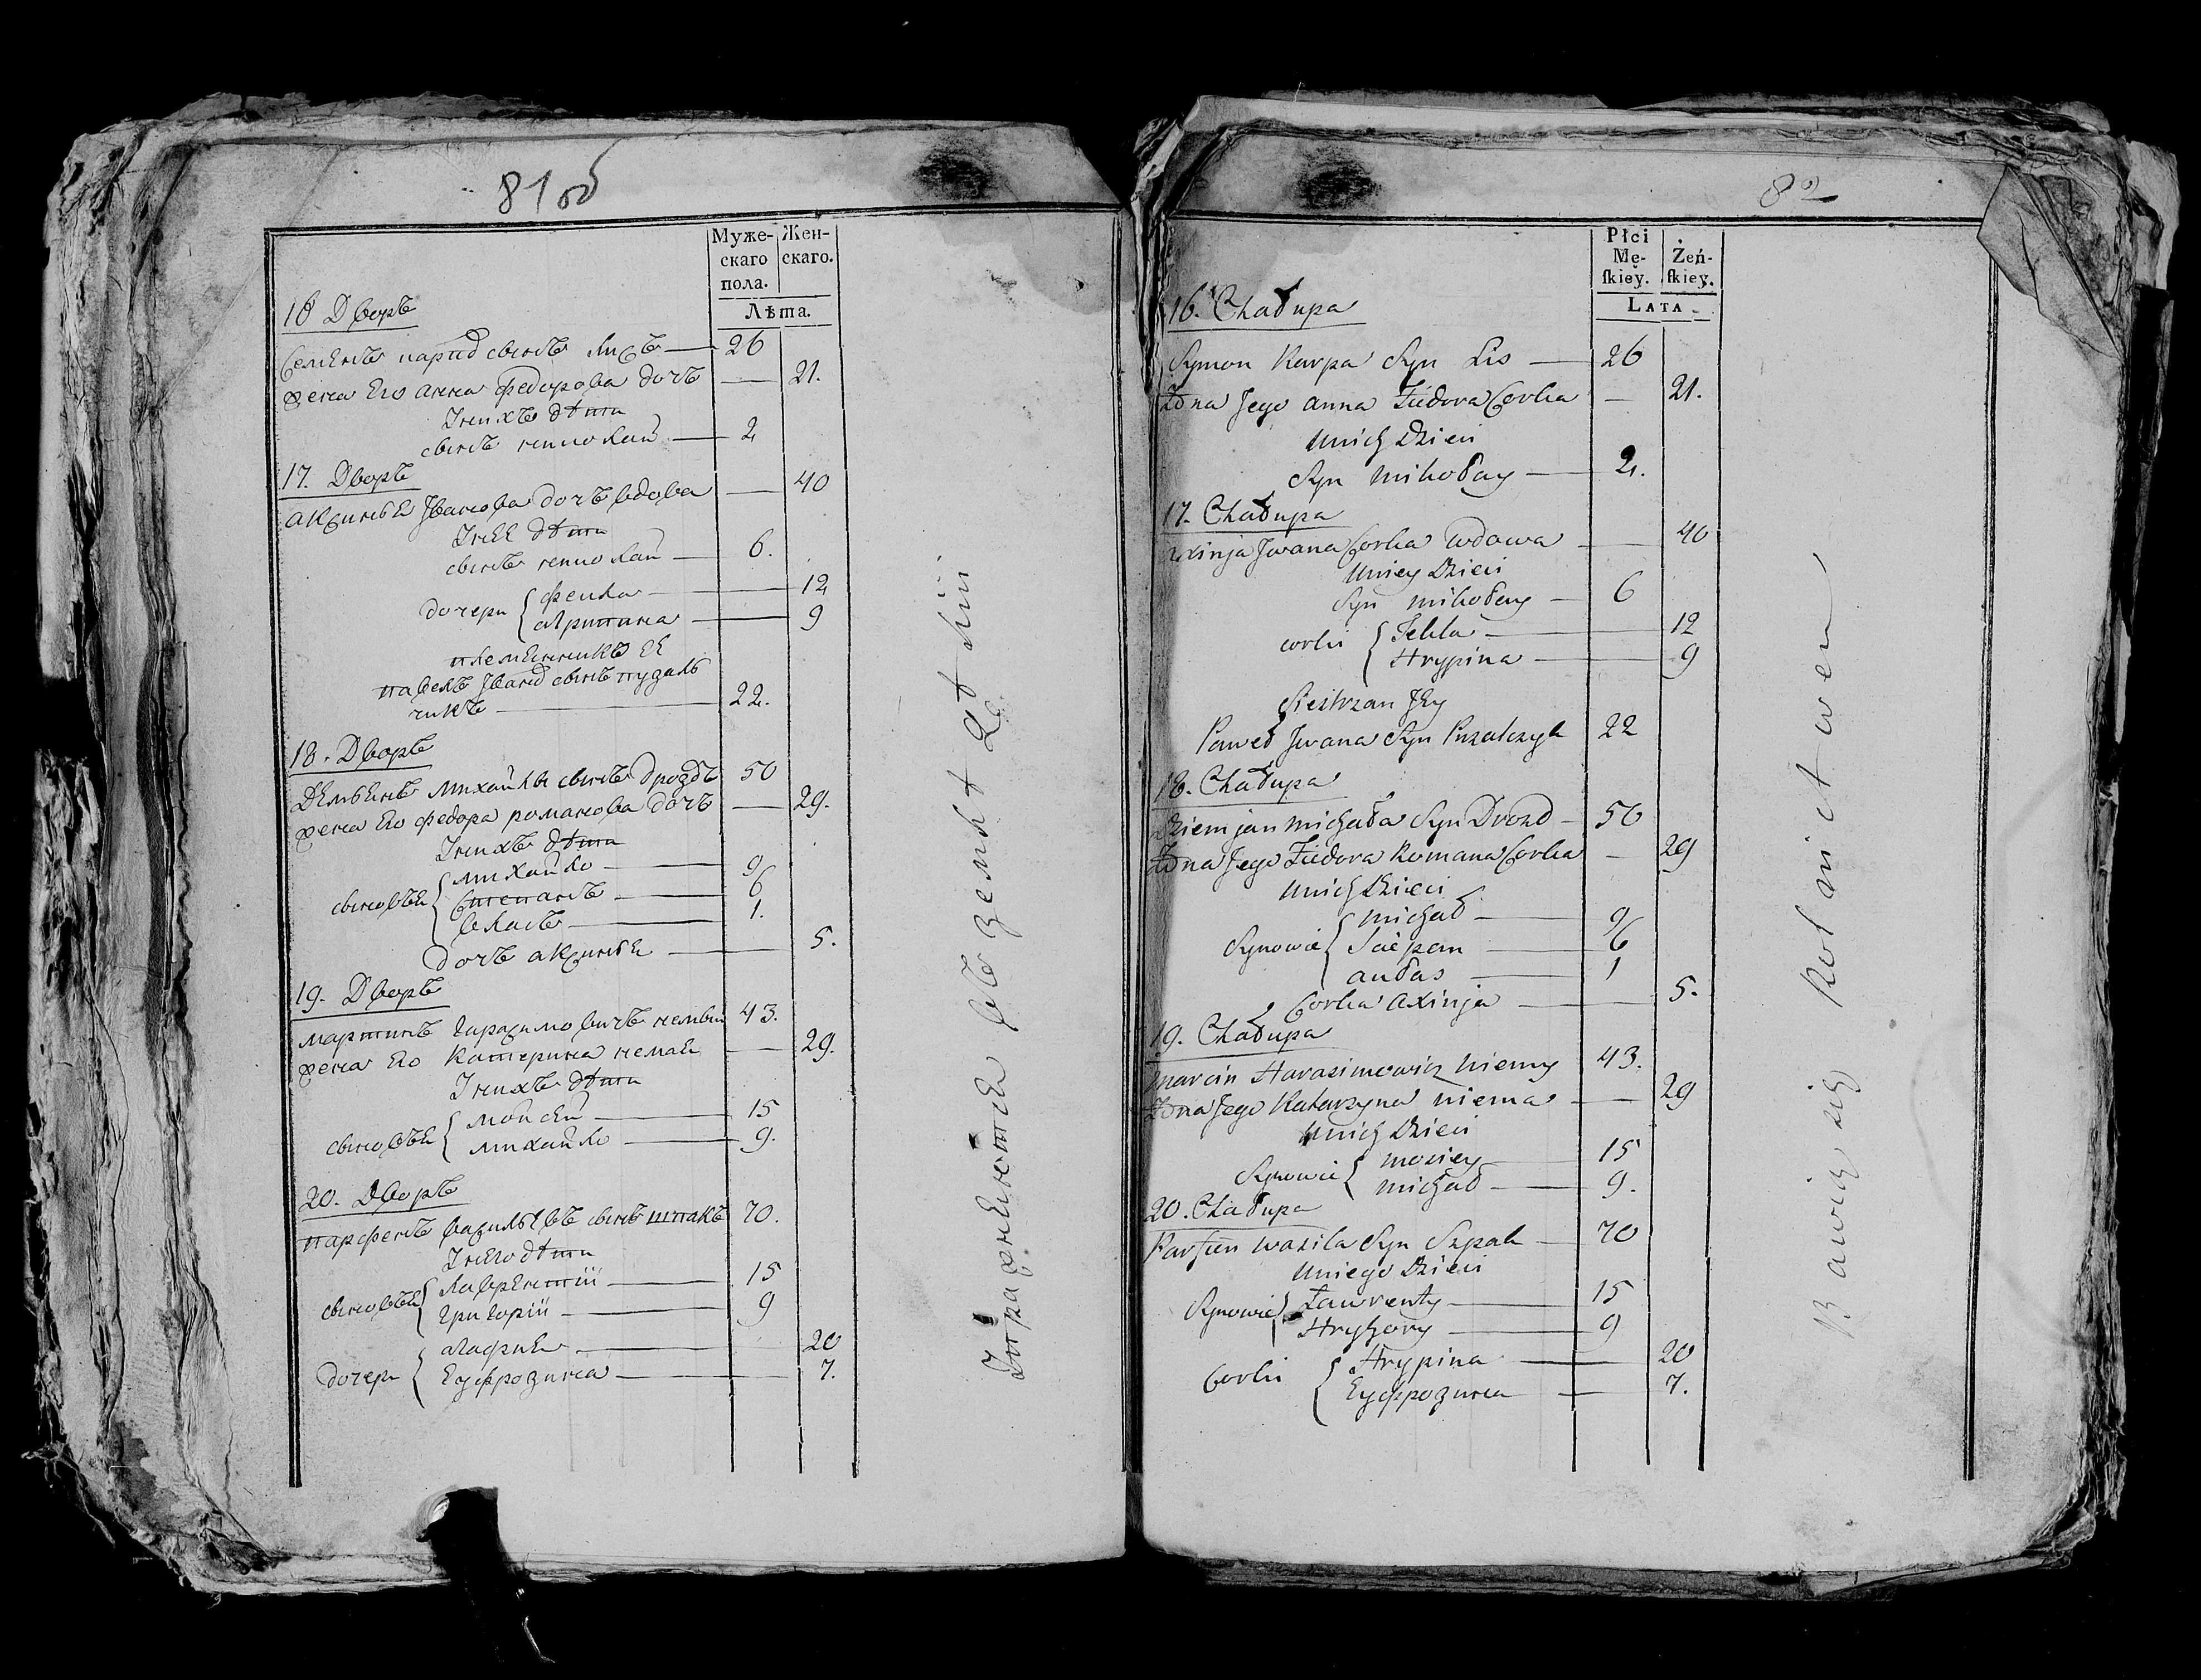 81 об
Муже-
скаго
пола.
Жен-
скаго.
Лѣта.
16 Дворъ
Семенъ карпа сынъ Лисъ — 26
жена Его анна Федорова дочъ — 21.
У нихъ дѣти
сынъ николай — 2
17. Дворъ
аксинья Иванова дочъ вдова — 40
У нее дѣти
сынъ николай — 6.
дочери { Фекла — 12
агрипина — 9
племянникъ ее
павелъ Ивана сынъ пузаль
чикъ — 22.
18. Дворъ
Демьянъ михайлы сынъ дроздъ 50
жена Его федора романова дочъ — 29.
У нихъ дѣти
сыновъя { михайло — 9
Степанъ — 6
власъ — 1.
дочъ аксинья — 5.
19. Дворъ
мартинъ гарасимовичъ немый 43.
жена Его Катерина немая — 29.
У нихъ дѣти
сыновъя { мойсей — 15
михайло — 9.
20. Дворъ
парфенъ васильевъ сынъ шпакъ 70.
У него дѣти
сыновъя { лаврентіи — 15
григоріи — 9
дочери { — 20
Еуфрозина — 7.
Упражняются въ
82
Płci
Mę-
skiey.
Żeń-
skiey.
LATA
16. Chałupa
Symon Karpa Syn Lis — 26
Żona Jego anna Fiedora Corka — 21.
Unich Dzieci
Syn mikołay — 2.
17. Chałupa
axinja Jwana Corka wdowa — 40
Uniey Dzieci
Syn mikołay — 6
corki { Fekla — 12
Hrypina — 9
Siestrzan Jey
Paweł Jwana Syn Puzalczyk 22
18. Chałupa
Dziemjan michała Syn Drozd — 50
Żona Jego Fiedora Romana Corka — 29
Unich Dzieci
Synowie { michał — 9
Sciepan — 6
aułas — 1
Corka axinja — 5.
19. Chałupa
marcin Harasimowicz niemy 43.
Żona Jego Katarzyna niema — 29
Unich Dzieci
Synowie { mosiey — 15
michał — 9.
20. Chałupa
Parfien wasila Syn Szpak — 70
Uniego Dzieci
Synowie { Ławrenty — 15
Hryhory — 9
Corki { Hrypina — 20
Еуфрозина — 7.
Bawią się Rolnictwem